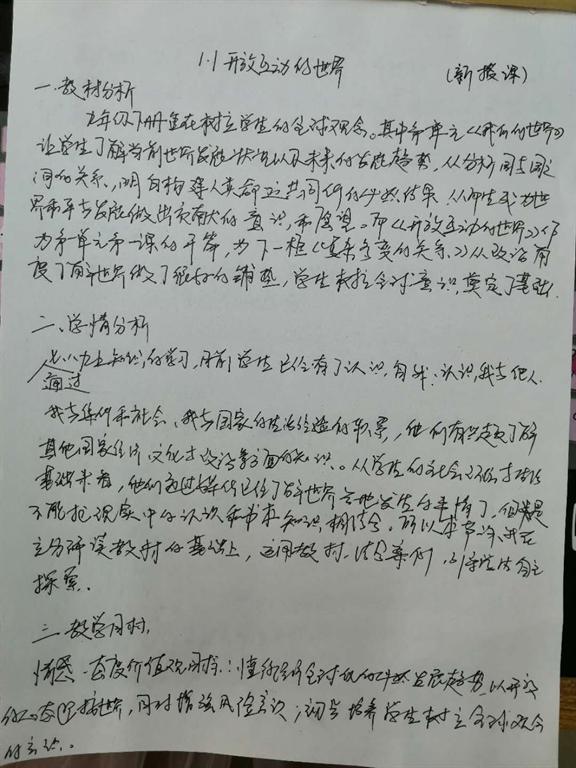 1.1 开放互动的世界 (新授课)
一.教材分析
九年级下册旨在树立学生的全球观念。其中第一单元《我们的世界》
让学生了解当前世界发展状况以及未来的发展趋势,从分析国与国之
间的关系,明白构建人类命运共同体的必然结果,从而生成为世
界和平与发展做出贡献的意识和愿望。而《开放互动的世界》作
为第一单元第一课的开篇,为下一框《复杂多变的关系》从政治角
度了解世界做了很好的铺垫,学生树立全球意识奠定了基础.
二、学情分析
通过 七八九上知识的学习,目前学生已经有了认识自我、认识我与他人、
我与集体和社会、我与国家的生活经验的积累,他们有兴趣了解
其他国家经济文化等方面的知识。从学生的社会
基础来看,他们通过媒体已经了解世界各地发生的事情了,但是
不能把现实中的认识和书本知识相结合,所以本节课我在
充分研读教材的基础上,运用教材,结合案例,引导学生自主
探索.
三.教学目标.
情感·态度价值观目标:懂得经济全球化的必然发展趋势,以开放
的心态迎接世界,同时增强风险意识;初步培养学生树立全球观念
的意识。